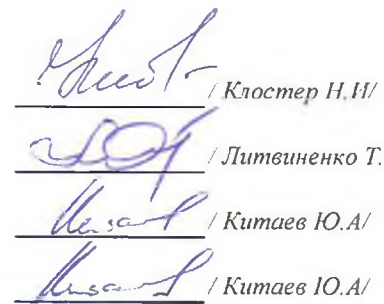 / Клостер Н.И/
/ Литвиненко Т.
/ Китаев Ю.А/
/ Китаев Ю.А/